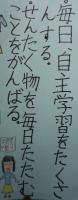 ・毎日、自主学習をたくさ
んする。
・せんたく物を毎日たたむ
ことをがんばる。